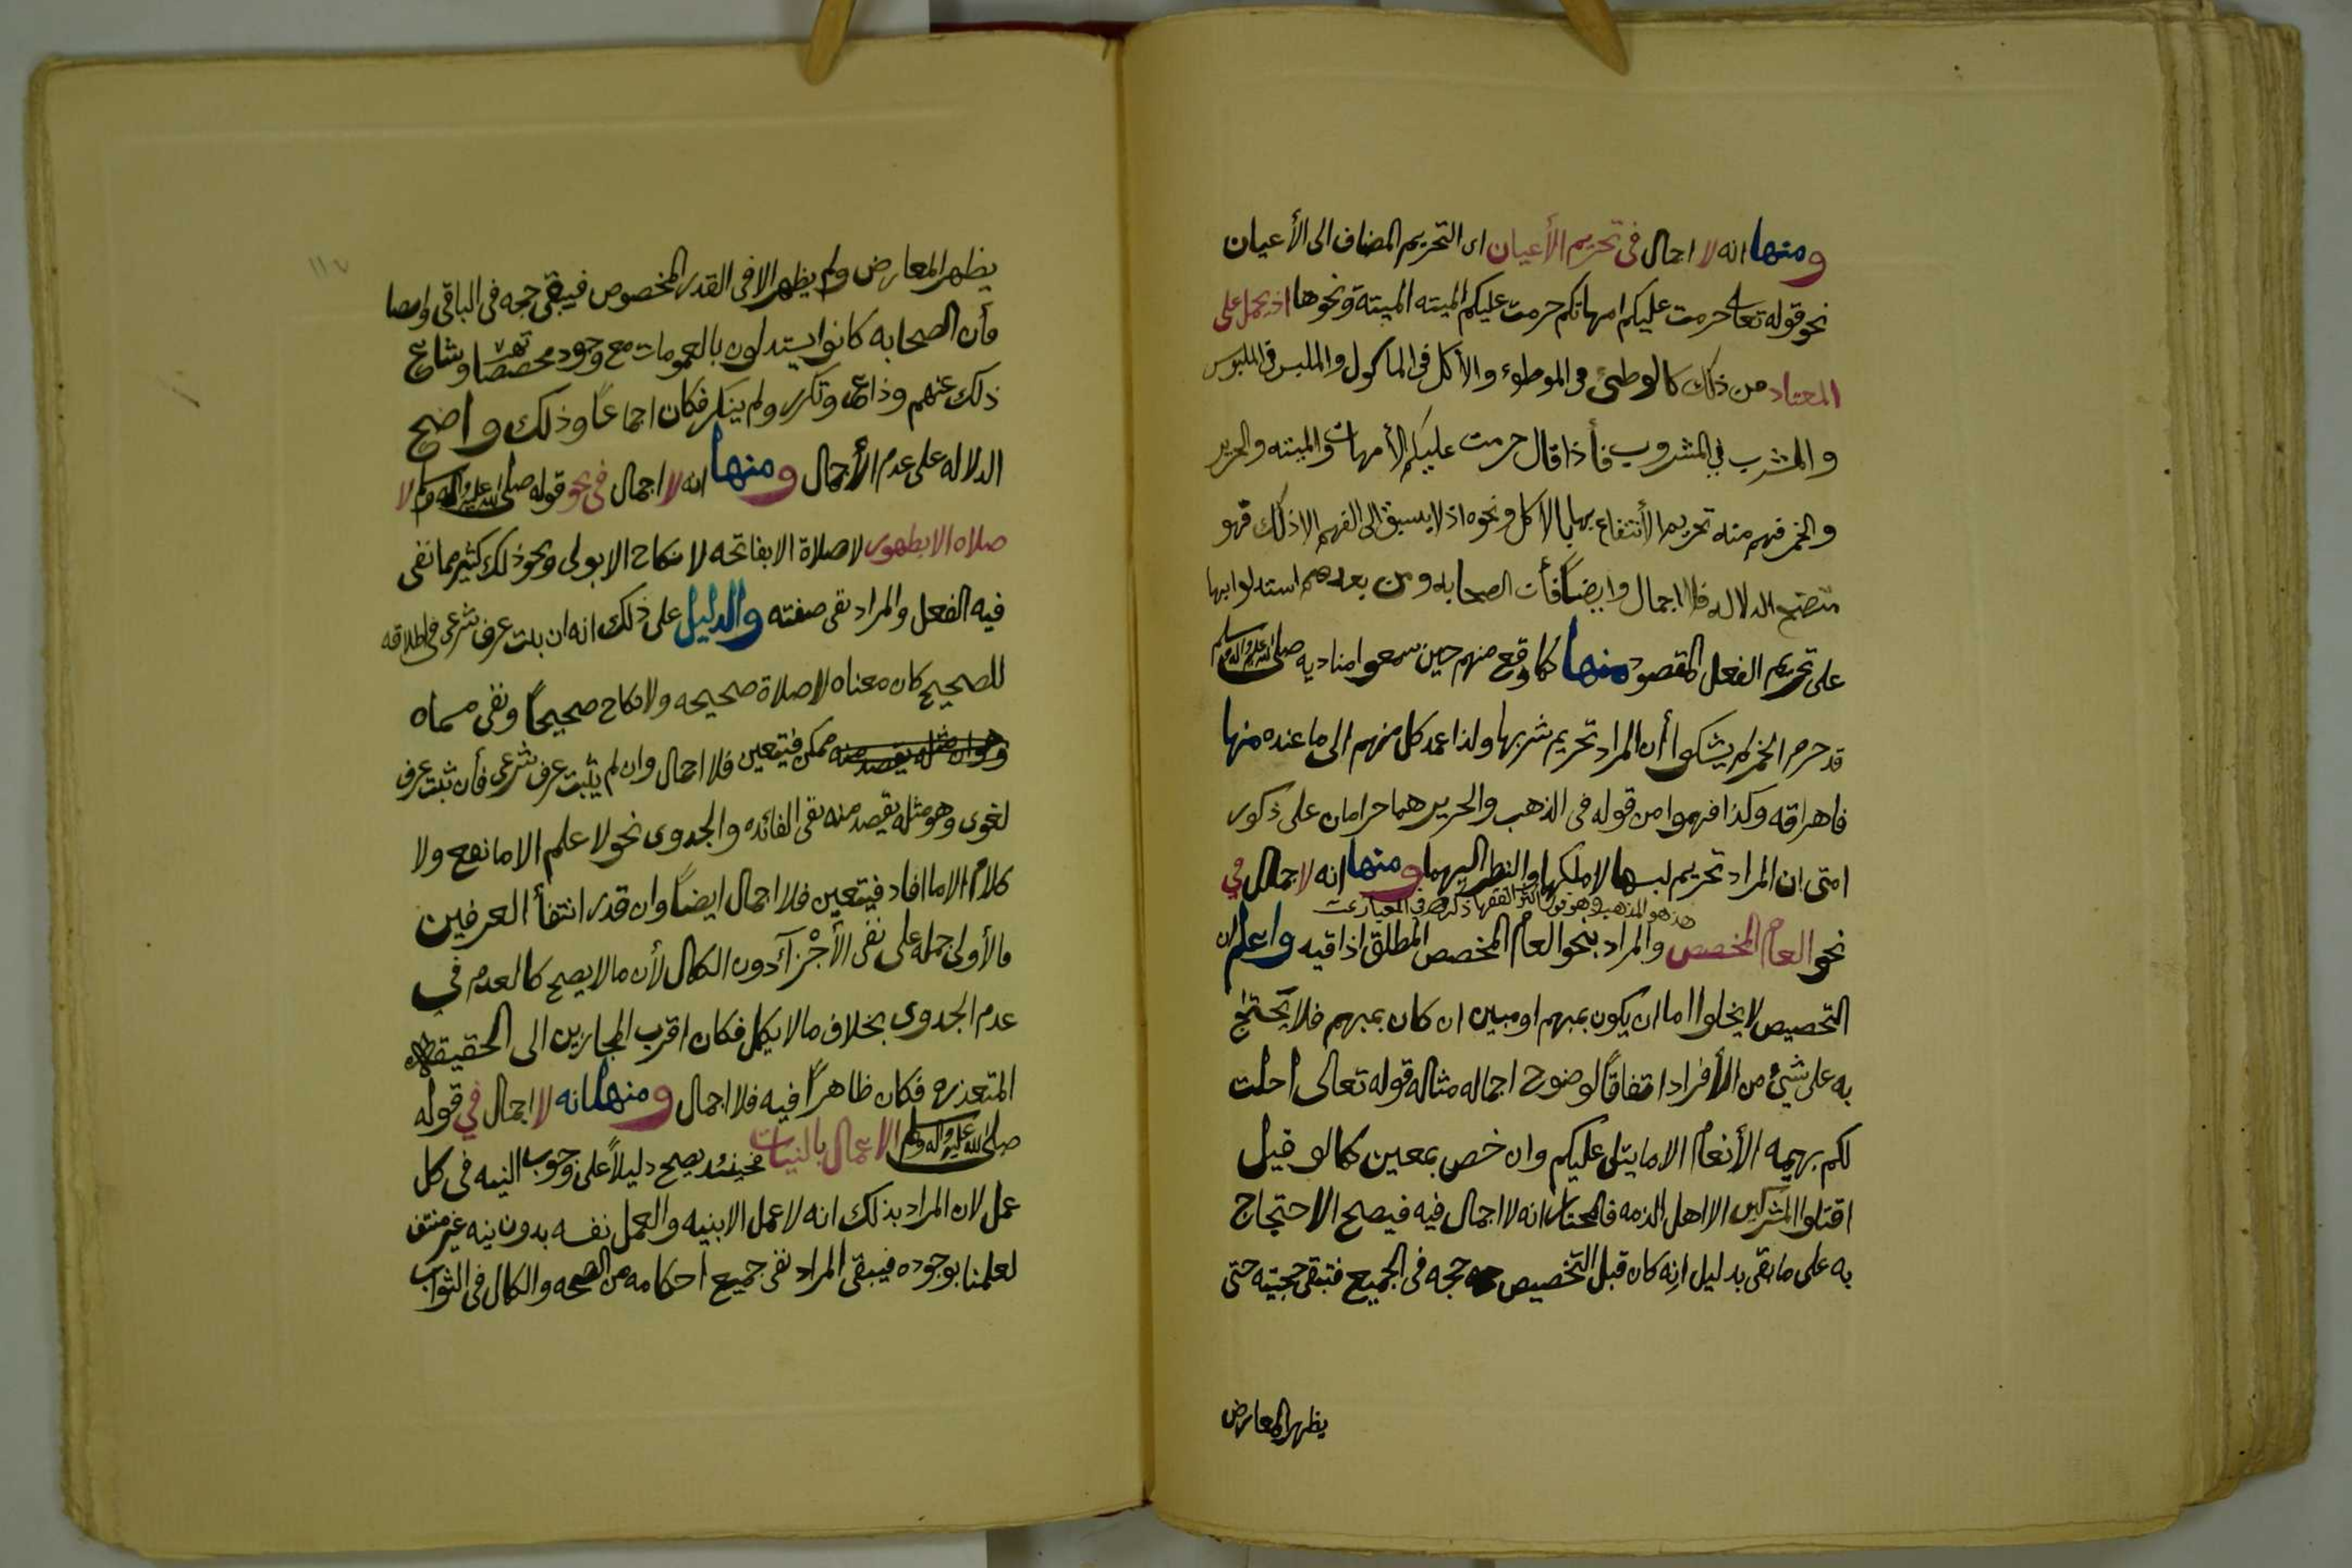 ومنها انه لا اجمال في تحريم الأعيان اى التحريم المضاف الى الأعيان
نحو قوله تعالى حرمت عليكم امهاتكم حرمت عليكم الميته الميتة ونحوها اذ يحمل على
المعتاد من ذلك كالوطئ في الموطوء والأكل في الماكول والملبس في الملبوس
والمشرب في المشروب فأذا قال حرمت عليكم الأمهات والميته والحرير
والخمر فهم منه تحريم الأنتفاع بها بالاكل ونحوه اذ لا يسبق الى الفهم الا ذلك فهو
متضح الدلاله فلا اجمال وايضاً فأن الصحابه ومن بعدهم استدلوا بها
على تحريم الفعل المقصود منها كما وقع منهم حين سمعوا مناديه صلى الله عليه واله وسلم
قد حرم الخمر لم يشكوا أن المراد تحريم شربها ولذا عمد كل منهم الى ما عنده منها
فاهراقه وكذا فهموا من قوله في الذهب والحرير هما حرامان على ذكور
امتى ان المراد تحريم لبسها لا ملكها والنظر اليهما ومنها انه لا اجمال في
هذ هو المذهب وهو قول اكثر الفقها ذكره في المعيار تمت
نحو العام المخصص والمراد بنحو العام المخصص المطلق اذا قيد واعلم ان
التخصيص لا يخلوا اما ان يكون بمبهم او مبين ان كان بمبهم فلا يحتج
به على شيء من الأفراد اتفاقاً لوضوح اجماله مثاله قوله تعالى احلت
لكم بهيمه الأنعام الا ما يتلى عليكم وان خص بمعين كما لو قيل
اقتلوا المشركين الا اهل الذمه فالمختار انه لا اجمال فيه فيصح الاحتجاج
به على ما بقى بدليل انه كان قبل التخصيص حجه في الجميع فتبقى حجيته حتى
يظهر المعارض
١١٧
يظهر المعارض ولم يظهر الا في القدر المخصوص فيبقى حجه في الباقى وايضا
فأن الصحابه كانوا يستدلون بالعمومات مع وجود مخصصاتها وشاع
ذلك عنهم وذاع وتكرر ولم ينكر فكان اجماعاً وذلك واضح
الدلاله على عدم الأجمال ومنها انه لا اجمال في نحو قوله صلى الله عليه واله وسلم لا
صلاه الا بطهور لا صلاة الا بفاتحه لا نكاح الا بولى ونحو ذلك كثير مما نفى
فيه الفعل والمراد نفى صفته والدليل على ذلك انه ان ثبت عرف شرعى في اطلاقه
للصحيح كان معناه لا صلاة صحيحه ولا نكاح صحيحاً ونفى مسماه
وهو ان مثله يقصد منه ممكن فيتعين فلا اجمال وان لم يثبت عرف شرعى فأن ثبت عرف
لغوى وهو مثله يقصد منه نفى الفائده والجدوى نحو لا علم الا ما نفع ولا
كلام الا ما افاد فيتعين فلا اجمال ايضاً وان قدر انتفأ العرفين
فالأولى حمله على نفى الأجزآء دون الكمال لأن ما لا يصح كالعدم في
عدم الجدوى بخلاف ما لا يكمل فكان اقرب المجازين الى الحقيقه
المتعذره فكان ظاهراً فيه فلا اجمال ومنها انه لا اجمال في قوله
صلى الله عليه واله وسلم الاعمال بالنيات فحينئذ يصح دليلاً على وجوب النيه في كل
عمل لان المراد بذلك انه لا عمل الا بنيه والعمل نفسه بدون نيه غير منتف
لعلمنا بوجوده فيبقى المراد نفى جميع احكامه من الصحه والكمال في الثواب